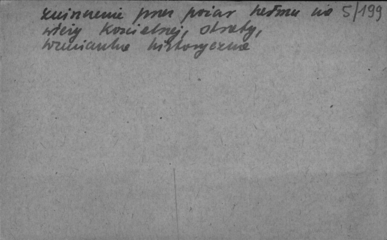 zniszczenie przez pożar hełmu na 5/199
wieży kościelnej, straty,
wzmianka historyczna